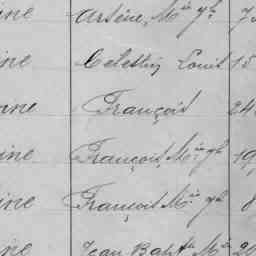 ine Arsène, M⁽ⁱᵉ⁾ Jʰ 7
ine Célestin Louis 15
ine François 24
ine François, Mⁱᵉ Jʰ 19
ine François Mⁱᵉ Jʰ 8
ine Jean Bapt^te Mⁱᵉ 20